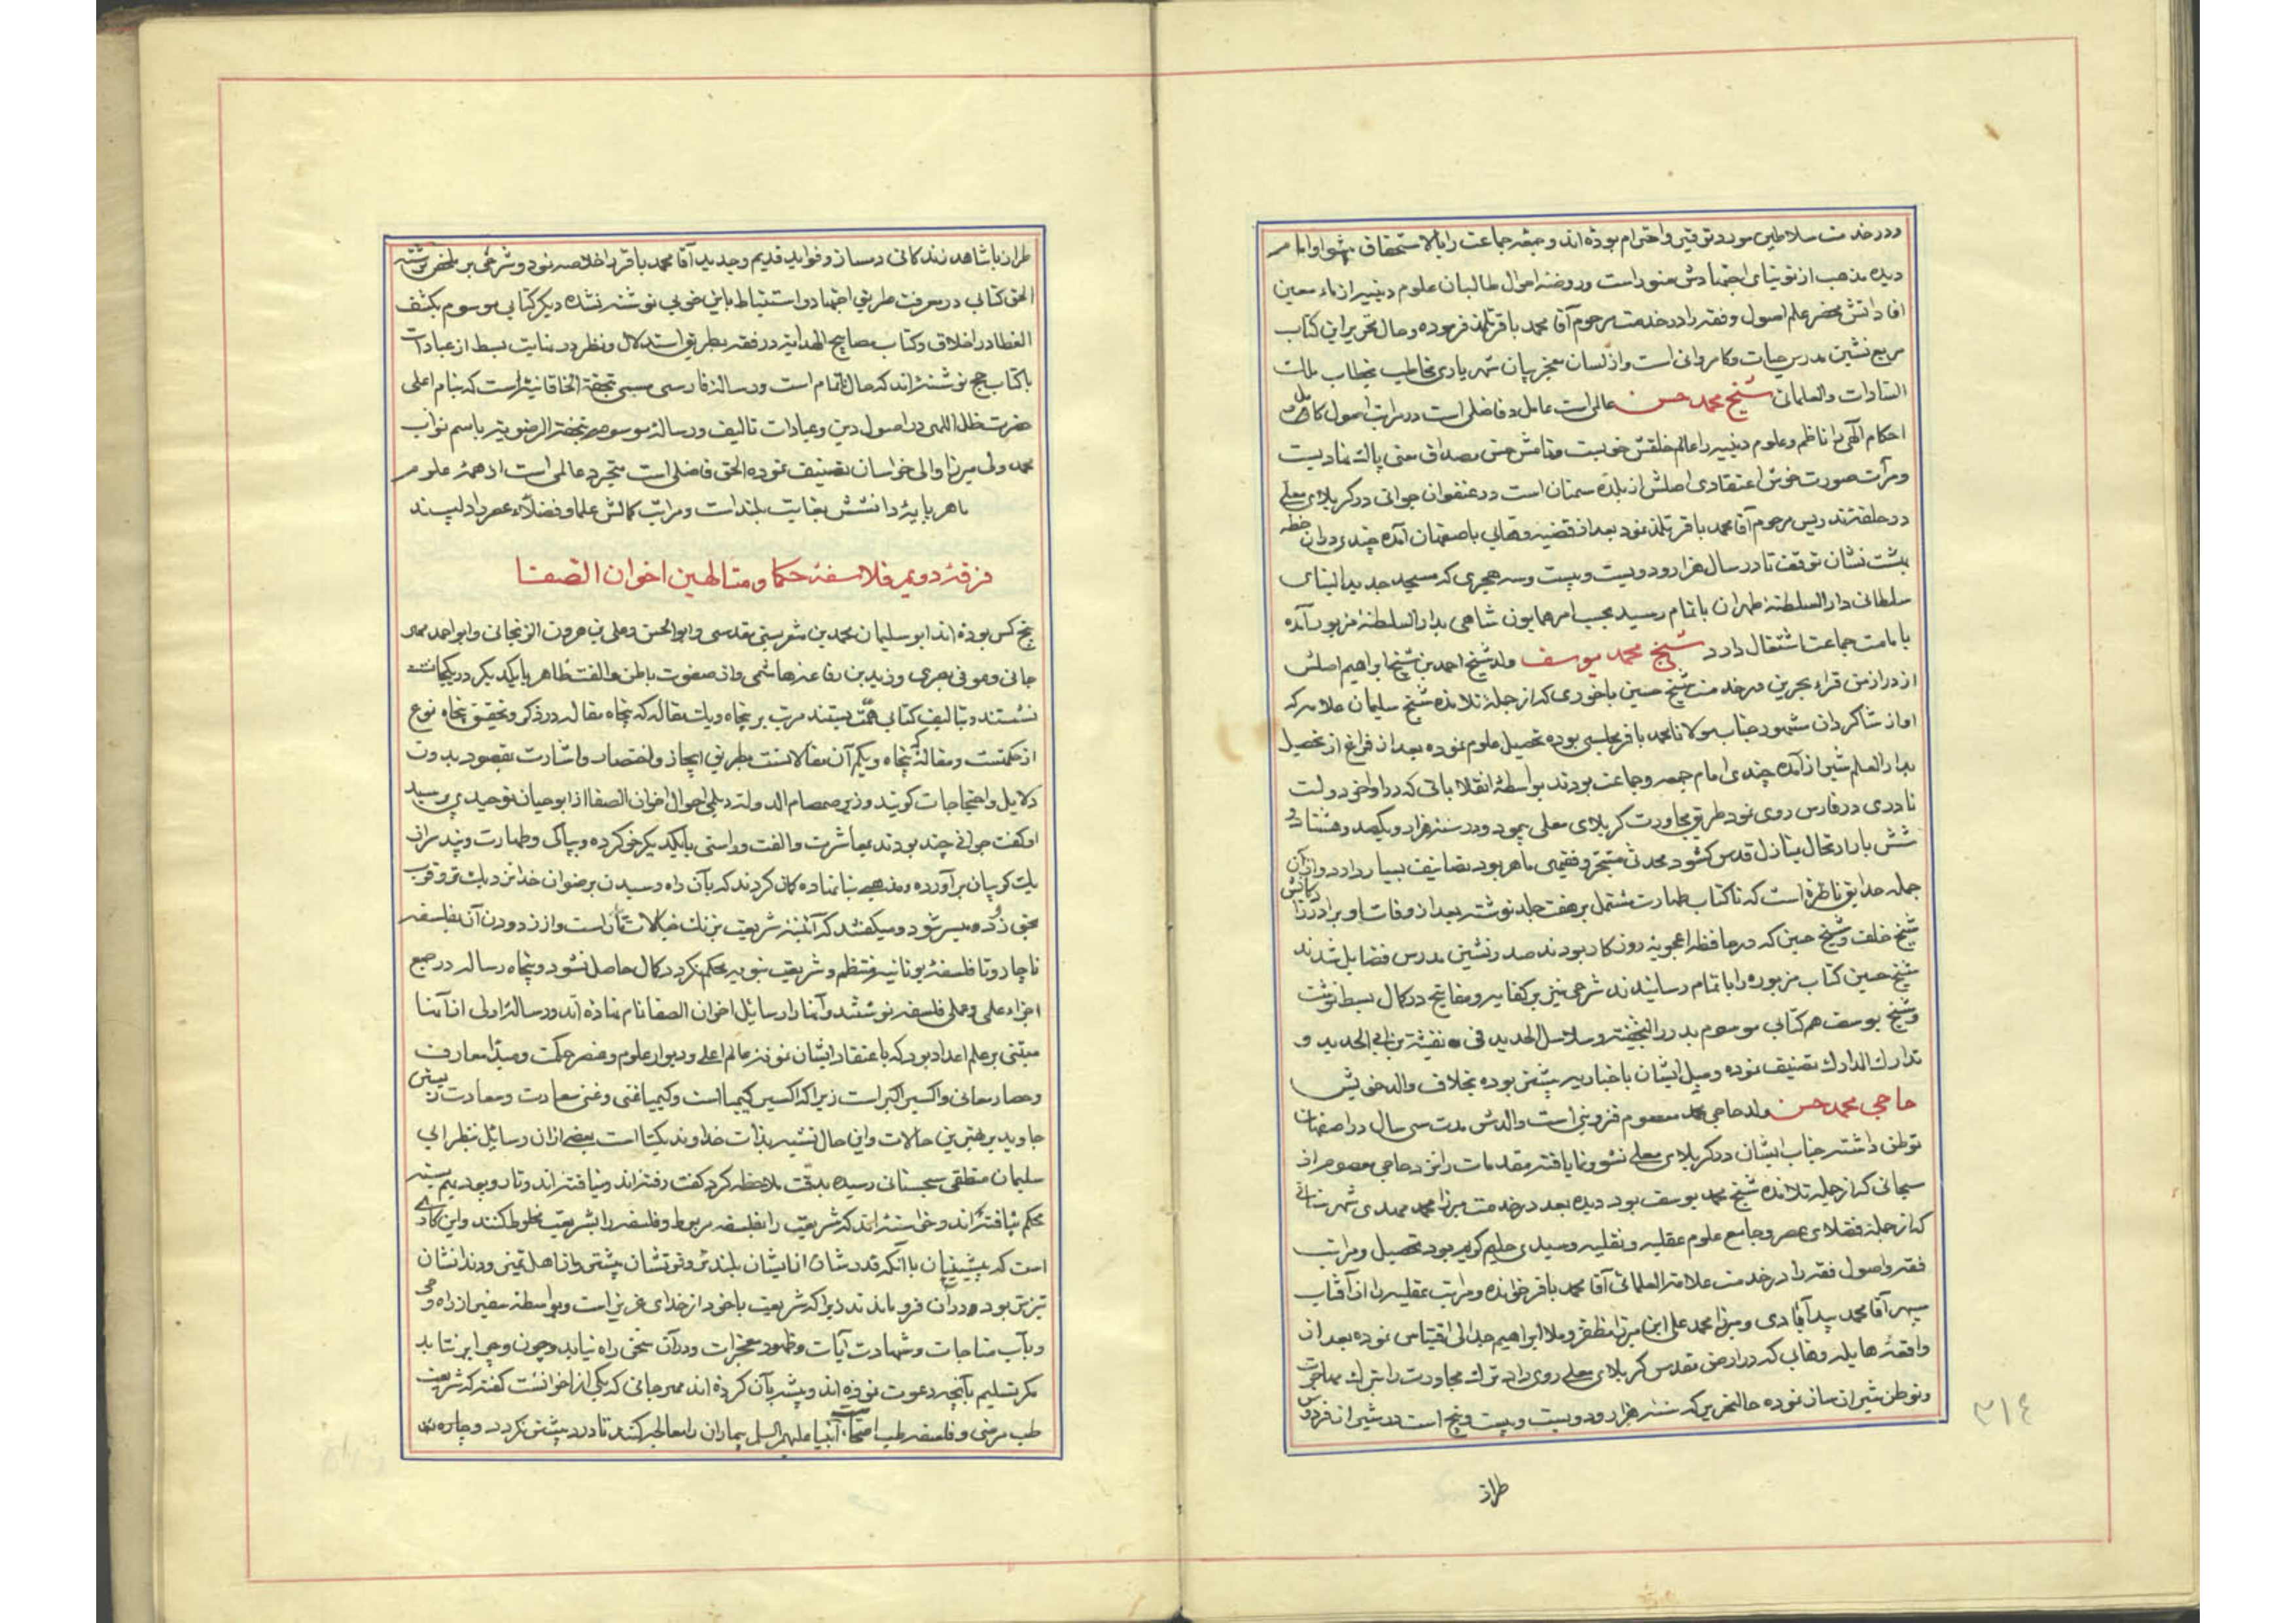 و در خدمت سلاطین مورد توقیر و احترام بوده‌اند و جمعه جماعت را بالاستحقاق پیشوا و امام
دیده مذهب از توتیای اجتهادش منور است و روضه احوال طالبان علوم دینیه از ماء معین
افاداتش مخضر علم اصول و فقه را در خدمت مرحوم آقا محمد باقر تلمذ فرموده و حال تحریر این کتاب
مربع نشین مدرس حیات و کامرانی است و از لسان معجز بیان شهریاری مخاطب بخطاب ملک
السادات والعلماء شیخ محمد حسن عالمی است عامل و فاضلی است در مراتب اصول کامل
احکام الهی را ناظم و علوم دینیه را عالم خلقش خوبست و منامش حسن مصداق معنی پاک نهادیست
و مرآت صورت خوش اعتقادی اصلش از بلده سمنان است در عنفوان جوانی در کربلای معلی
در حلقه تدریس مرحوم آقا محمد باقر تلمذ نمود بعد از قضیه وهابی باصفهان آمده چندی در آن خطه
بهشت نشان توقف تا در سال هزار و دویست و بیست و سه هجری که مسجد جدید البنای
سلطانی دار السلطنه طهران باتمام رسید بحسب امر همایون شاهی بدار السلطنه مزبور آمده
بامامت جماعت اشتغال دارد شیخ محمد یوسف ولد شیخ احمد بن شیخ ابراهیم اصلش
از دراز من قراء بحرین در خدمت شیخ حسین ماحوزی که از جمله تلامذه شیخ سلیمان علامه که
او از شاگردان مشهور جناب مولانا محمد باقر مجلسی بوده تحصیل علوم نموده بعد از فراغ از تحصیل
بدار العلم شیراز آمده چندی امام جمعه و جماعت بودند بواسطه انقلاباتی که در اواخر دولت
نادری در فارس روی نمود طریق مجاورت کربلای معلی پیمود و در سنه هزار و یکصد و هشتاد و
شش بار ارتحال بمنازل قدس گشود محدثی متبحر و فقیهی ماهر بود تصانیف بسیار دارد و از آن
جمله حدایق ناظره است که تا کتاب طهارت مشتمل بر هفت جلد نوشته بعد از وفات او برادرزادگانش
شیخ خلف و شیخ حسین که در حافظه اعجوبه روزگار بودند صدر نشین مدرس فضایل شدند
شیخ حسین کتاب مزبوره را باتمام رسانیدند شرحی نیز بر کفایه و مفاتیح در کمال بسط نوشت
و شیخ یوسف هم کتابی موسوم بدرر النجفیه و سلاسل الحدید فی تقیید بن ابی الحدید و
تدارک المدارک تصنیف نموده و میل ایشان باخباریه بیشتر بوده بخلاف والد خویش
حاجی محمد حسن ولد حاجی محمد معصوم قزوینی است والدش مدت سی سال در اصفهان
توطن داشته جناب ایشان در کربلای معلی نشو و نما یافته مقدمات را نزد حاجی معصوم از
سبحانی که از جمله تلامذه شیخ محمد یوسف بود دیده بعد در خدمت میرزا محمد مهدی شهرستانی
که از جمله فضلای عصر و جامع علوم عقلیه و نقلیه و سیدی حلیم کریم بود تحصیل و مراتب
فقه و اصول فقه را در خدمت علامة العلمائی آقا محمد باقر خوانده و مراتب عقلیه را از آفتاب
سپهر آقا محمد بیدآبادی و میرزا محمد علی ابن میرزا مظفر و ملا ابراهیم جدلی اقتباس نموده بعد از
واقعه هایله وهابی که در ارض مقدس کربلای معلی روی داد ترک مجاورت را بترک مهاجرت
و توطن شیراز ساز نموده حالتحریر که سنه هزار و دویست و بیست و پنج است در شیراز فردوس
طراز
۳۱۴
طراز با شاهد زندگانی دمساز و فواید قدیم و جدید آقا محمد باقر را خلاصه نمود و شرحی بر ملخص نوشته
الحق کتابی در معرفت طریق اجتهاد و استنباط باین خوبی نوشته نشده دیگر کتابی موسوم بکشف
الغطا در اخلاق و کتاب مصابیح الهدایة در فقه بطریق استدلال و نظر در نهایت بسط از عبادات
با کتاب حج نوشته‌اند که حال ناتمام است و رساله فارسی مسمی بتحفة الخاقانیه است که بنام اعلی
حضرت ظل اللهی در اصول دین و عبادات تالیف و رساله موسومه بتحفة الرضویه باسم نواب
محمد ولی میرزا والی خراسان تصنیف نموده الحق فاضلی است متبحر و عالمی است از همه علوم
ماهر پایه دانشش بغایت بلند است و مراتب کمالش علما و فضلاء عصر را دلپسند
فرقه دویم فلاسفه حکما و متالهین اخوان الصفا
پنج کس بوده‌اند ابو سلیمان محمد بن مشعر بستی مقدسی و ابو الحسن و علی بن هرون الزنجانی و ابو احمد مهر
جانی و عوفی بصری و زید بن رفاعه هاشمی و از صفوت باطن و الفت ظاهر با یکدیگر در یکجا
نشستند و بتالیف کتابی همت بستند مرتب بر پنجاه و یک مقاله که پنجاه مقاله در ذکر و تحقیق پنجاه نوع
از حکمتست و مقاله پنجاه و یکم آن مقالاتست بطریق ایجاز و اختصار و اشارت بمقصود بدون
دلایل و احتجاجات گویند وزیر صمصام الدوله دیلمی احوال اخوان الصفا از ابو حیان توحیدی پرسید
او گفت جوانی چند بودند بمعاشرت و الفت و راستی با یکدیگر خو کرده و بپاکی و طهارت و پند سر از
یک گریبان برآورده و مذهبی بنا نهاده گمان کردند که بآن راه رسیدن برضوان خدا نزدیک تر و قرب
بحق زوده میسر شود و میگفتند که آئینه شریعت بزنک خیالات تمام است و از زدودن آن بفلسفه
ناچار و تا فلسفه یونانیه منتظم و شریعت نبویه محکم نگردد کمال حاصل نشود و پنجاه رساله در جمع
اجزاء علمی و عملی فلسفه نوشتند و آنها را رسایل اخوان الصفا نام نهاده‌اند و رساله اولی از آنها
مبتنی بر علم اعداد بود که باعتقاد ایشان نمونه عالم اعلی و دیوار علوم و عنصر حکمت و مبدا معارف
و حصار معانی و اکسیر اکبر است زیرا که اکسیر کیمیا است و کیمیا غنی و غنی سعادت و سعادت زیستن
جاوید بر بهترین حالات و این حال تشبیه بذات خداوند یکتا است بعضی از آن رسایل بنظر ابی
سلیمان منطقی سجستانی رسیده بدقت ملاحظه کرد گفت رفته‌اند و نیافته‌اند و تار و پود بهم
محکم نیافته‌اند و خواسته‌اند که شریعت را بفلسفه مربوط و فلسفه را بشریعت مخلوط کنند و این کاری
است که پیشینیان با آنکه قدرشان از ایشان بلندتر و قوتشان بیشتر و از اهل تمیز و دندانشان
تیزتر بود در آن فرو ماندند زیرا که شریعت ماخوذ از خدای عزیز است و بواسطه سفیر از راه وحی
و باب مناجات و شهادت آیات و ظهور معجزات و در آن سخن راه نیابد و چون و چرا بر نتابد
مگر تسلیم بآنچه دعوت نموده‌اند و پیشه بآن کرده‌اند مهرجانی که یکی از اخوانست گفته که شریعت
طب مرضی و فلسفه طب اصحا انبیا علیهم السلام بیماران را معالجه کنند تا درد بیشتر نگردد و چاره